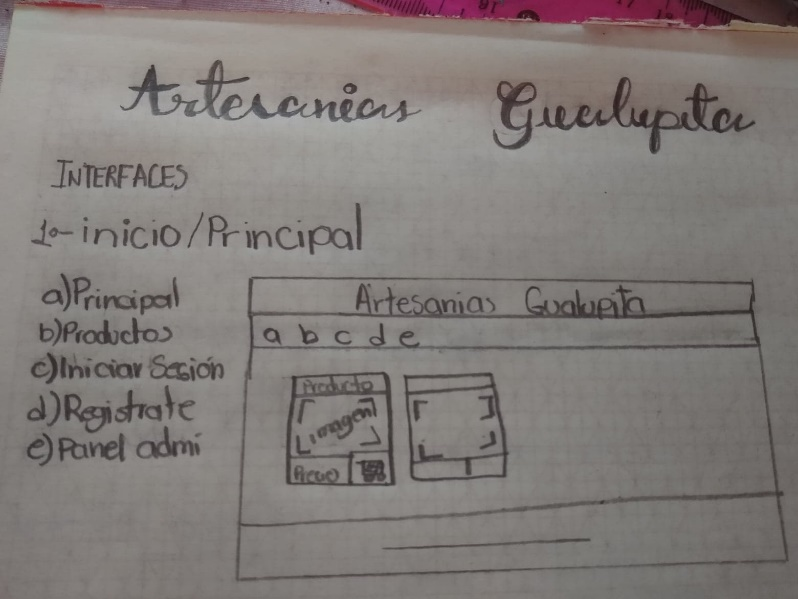 Artesanias Gualupita
INTERFACES
1º- inicio/Principal
a)Principal
b)Productos
c)Iniciar Sesión
d)Registrate
e)Panel admi
Artesanias Gualupita
a b c d e
Producto
imagen
Precio